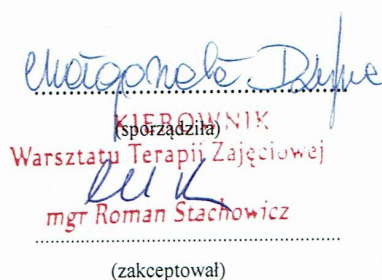 Małgorzata
(sporządziła)
KIEROWNIK
Warsztatu Terapii Zajęciowej
mgr Roman Stachowicz
(zakceptował)